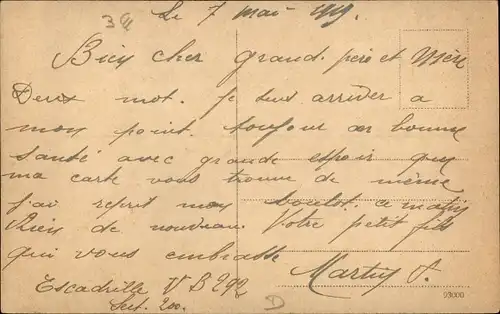 Le 7 mai 1919.
Bien cher grand père et Mère
Deux mot. Je suis arriver a
mon point. toujour en bonne
santé avec grande espoir que
ma carte vous trouve de même
j'ai reprit mon boulot ce matin
Rien de nouveau. Votre petit fils
qui vous embrasse
Escadrille V B 292
Sect. 200.
99000